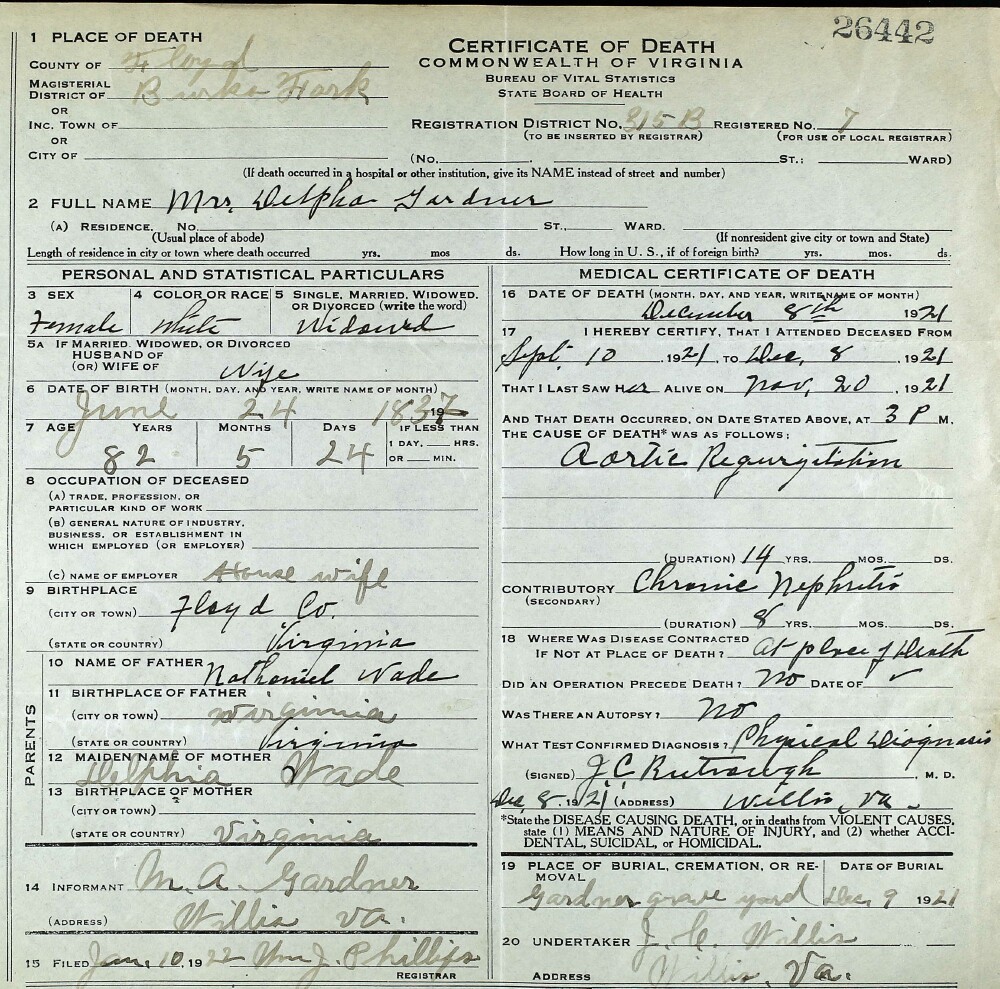 26442
1 PLACE OF DEATH
COUNTY OF Floyd
MAGISTERIAL DISTRICT OF Burks Fork
OR
INC. TOWN OF
OR
CITY OF
CERTIFICATE OF DEATH
COMMONWEALTH OF VIRGINIA
BUREAU OF VITAL STATISTICS
STATE BOARD OF HEALTH
REGISTRATION DISTRICT NO. 315 B REGISTERED NO. 7
(TO BE INSERTED BY REGISTRAR) (FOR USE OF LOCAL REGISTRAR)
(No. , ST.: WARD)
(If death occurred in a hospital or other institution, give its NAME instead of street and number)
2 FULL NAME Mrs. Delpha Gardner
(A) RESIDENCE. No. ST., WARD.
(Usual place of abode) (If nonresident give city or town and State)
Length of residence in city or town where death occurred yrs. mos ds. How long in U. S., if of foreign birth? yrs. mos. ds.
PERSONAL AND STATISTICAL PARTICULARS
3 SEX 4 COLOR OR RACE 5 SINGLE, MARRIED, WIDOWED, OR DIVORCED (write the word)
Female White Widowed
5A IF MARRIED, WIDOWED, OR DIVORCED
HUSBAND OF
(OR) WIFE OF Wife
6 DATE OF BIRTH (MONTH, DAY, AND YEAR, WRITE NAME OF MONTH)
June 24 1837
7 AGE YEARS MONTHS DAYS IF LESS THAN
1 DAY, HRS.
OR MIN.
82 5 24
8 OCCUPATION OF DECEASED
(A) TRADE, PROFESSION, OR
PARTICULAR KIND OF WORK
(B) GENERAL NATURE OF INDUSTRY,
BUSINESS, OR ESTABLISHMENT IN
WHICH EMPLOYED (OR EMPLOYER)
(C) NAME OF EMPLOYER House wife
9 BIRTHPLACE
(CITY OR TOWN) Floyd Co.
(STATE OR COUNTRY) Virginia
PARENTS
10 NAME OF FATHER Nathaniel Wade
11 BIRTHPLACE OF FATHER
(CITY OR TOWN) Virginia
(STATE OR COUNTRY) Virginia
12 MAIDEN NAME OF MOTHER
Delphia Wade
13 BIRTHPLACE OF MOTHER
(CITY OR TOWN)
(STATE OR COUNTRY) Virginia
14 INFORMANT M. A. Gardner
(ADDRESS) Willis Va.
15 FILED Jan. 10, 1922 Wm J. Phillips
REGISTRAR
MEDICAL CERTIFICATE OF DEATH
16 DATE OF DEATH (MONTH, DAY, AND YEAR, WRITE NAME OF MONTH)
December 8th 1921
17 I HEREBY CERTIFY, THAT I ATTENDED DECEASED FROM
Sept. 10, 1921, TO Dec, 8, 1921
THAT I LAST SAW Her ALIVE ON Nov, 20, 1921
AND THAT DEATH OCCURRED, ON DATE STATED ABOVE, AT 3 P M.
THE CAUSE OF DEATH* WAS AS FOLLOWS:
Aortic Regurgitation
(DURATION) 14 YRS. MOS. DS.
CONTRIBUTORY Chronic Nephritis
(SECONDARY)
(DURATION) 8 YRS. MOS. DS.
18 WHERE WAS DISEASE CONTRACTED
IF NOT AT PLACE OF DEATH? At place of Death
DID AN OPERATION PRECEDE DEATH? No DATE OF
WAS THERE AN AUTOPSY? No
WHAT TEST CONFIRMED DIAGNOSIS? Physical Diognosis
(SIGNED) J. C. , M. D.
Dec, 8. 1921 (ADDRESS) Willis, Va.
*State the DISEASE CAUSING DEATH, or in deaths from VIOLENT CAUSES,
state (1) MEANS AND NATURE OF INJURY, and (2) whether ACCI-
DENTAL, SUICIDAL, or HOMICIDAL.
19 PLACE OF BURIAL, CREMATION, OR RE-
MOVAL DATE OF BURIAL
Gardner grave yard Dec, 9 1921
20 UNDERTAKER J. H. Willis
ADDRESS Willis, Va.